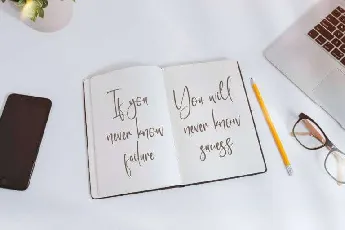 If you
never know
failure
You will
never know
sucess